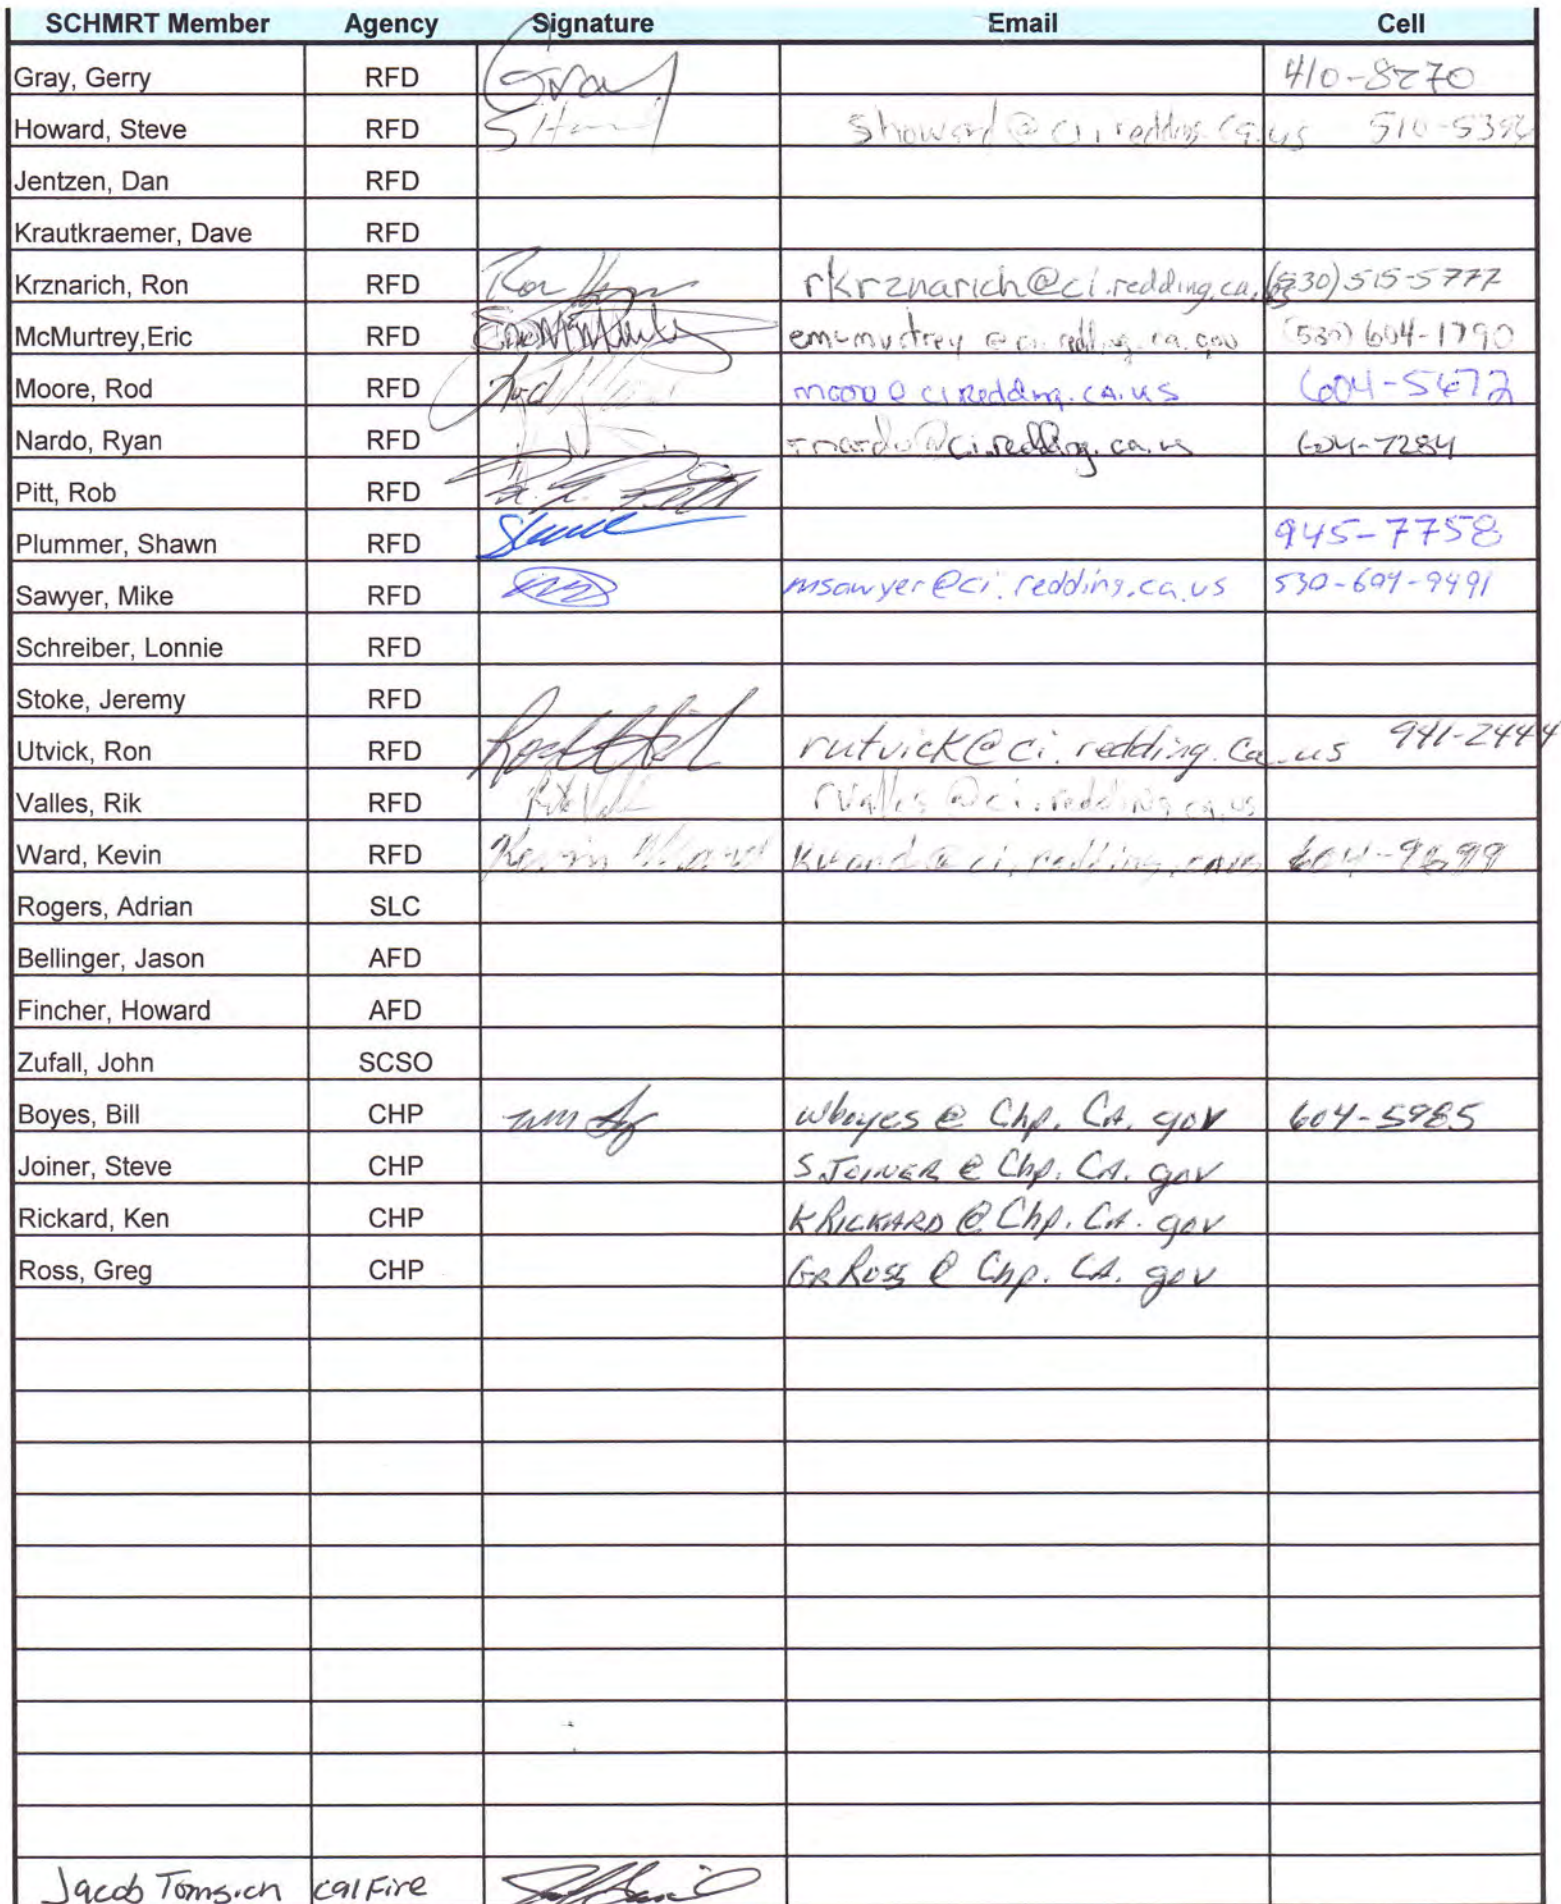 SCHMRT Member Agency Signature Email Cell
Gray, Gerry RFD Gray 410-8270
Howard, Steve RFD showard@ci.redding.ca.us
Jentzen, Dan RFD
Krautkraemer, Dave RFD
Krznarich, Ron RFD Ron rkrznarich@ci.redding.ca. (530) 515-5777
McMurtrey,Eric RFD emcmurtrey@ci.redding.ca.gov (530) 604-1790
Moore, Rod RFD Rod 604-5672
Nardo, Ryan RFD rnardo@ci.redding.ca.us 604-7284
Pitt, Rob RFD
Plummer, Shawn RFD 945-7758
Sawyer, Mike RFD msawyer@ci.redding.ca.us 530-604-9491
Schreiber, Lonnie RFD
Stoke, Jeremy RFD
Utvick, Ron RFD rutvick@ci.redding.ca.us 941-2444
Valles, Rik RFD rvalles@ci.redding.ca.us
Ward, Kevin RFD Kevin Ward kward@ci.redding.ca.us 604-9699
Rogers, Adrian SLC
Bellinger, Jason AFD
Fincher, Howard AFD
Zufall, John SCSO
Boyes, Bill CHP wboyes @ Chp. CA. gov 604-5985
Joiner, Steve CHP SJOINER @ Chp. CA. gov
Rickard, Ken CHP KRICKARD @ Chp. CA. gov
Ross, Greg CHP GRRoss @ Chp. CA. gov
Jacob Tomsich CalFire